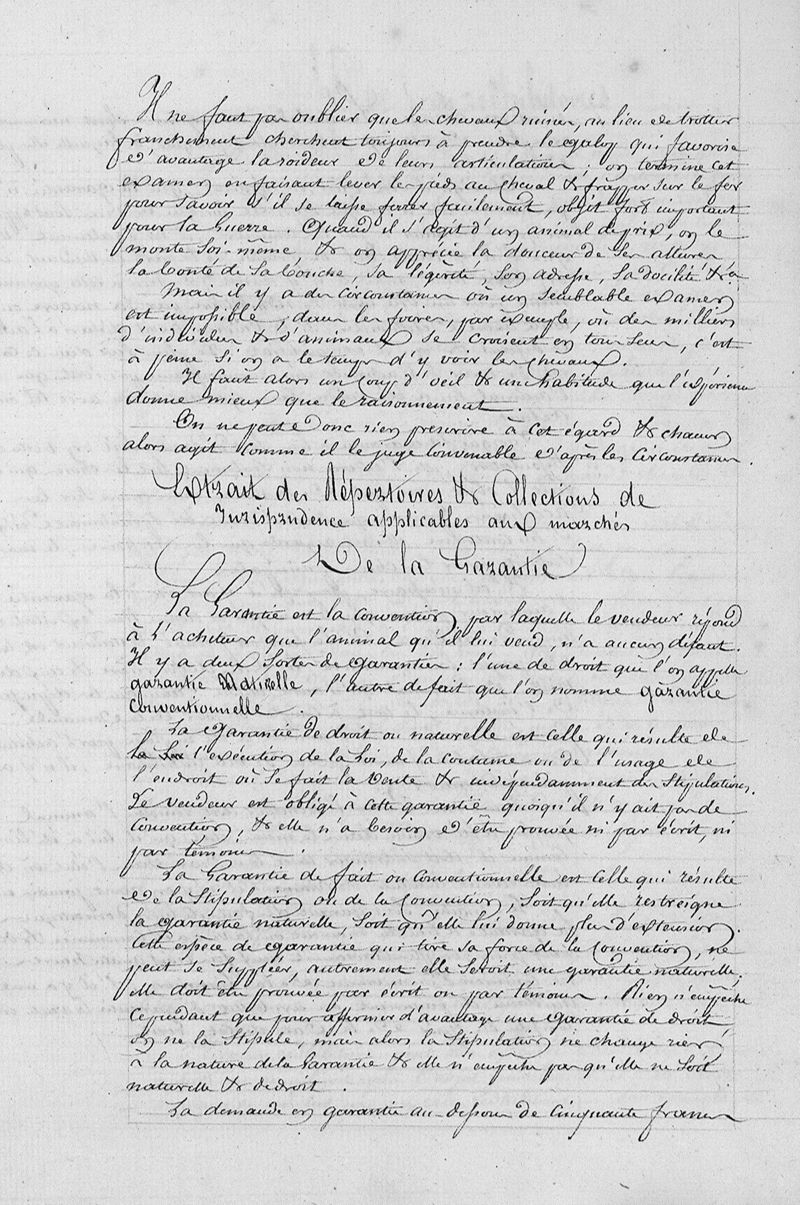 Il ne faut pas oublier que les chevaux ruinés, au lieu de trotter
franchement cherchent toujours à prendre le galop qui favorise
d'avantage la roideur de leurs articulations ; on termine cet
examen en faisant lever les pieds au cheval & frapper sur le fer
pour savoir s'il se laisse ferrer facilement, objet fort important
pour la Guerre. Quand il s'agit d'un animal de prix, on le
monte soi-même & on apprécie la douceur de ses allures
la bonté de sa bouche, sa légèreté, son adresse, sa docilité &a
Mais il y a des circonstances où un semblable examen
est impossible ; dans les foires, par exemple, où des milliers
d'individus & d'animaux se croisent en tous sens, c'est
à peine si on a le temps d'y voir les chevaux.
Il faut alors un coup d'œil & une habitude que l'expérience
donne mieux que le raisonnement.
On ne peut donc rien prescrire à cet égard & chacun
alors agit comme il le juge convenable d'après les circonstances.
Extrait des Répertoires & Collections de
Jurisprudence applicables aux marchés
De la Garantie
La Garantie est la convention par laquelle le vendeur répond
à l'acheteur que l'animal qu'il lui vend, n'a aucun défaut.
Il y a deux sortes de garanties : l'une de droit que l'on appelle
garantie Naturelle, l'autre de fait que l'on nomme garantie
conventionnelle.
La Garantie de droit ou naturelle est celle qui résulte de
la Loi l'exécution de la Loi, de la coutume ou de l'usage de
l'endroit où se fait la vente & indépendamment des stipulations.
Le vendeur est obligé à cette garantie quoiqu'il n'y ait pas de
convention, & elle n'a besoin d'être prouvée ni par écrit, ni
par témoins.
La Garantie de fait ou conventionnelle est celle qui résulte
de la stipulation ou de la convention, soit qu'elle restreigne
la garantie naturelle, soit qu'elle lui donne plus d'extension.
Cette espèce de garantie qui tire sa force de la convention, ne
peut se suppléer, autrement elle seroit une garantie naturelle ;
elle doit être prouvée par écrit ou par témoins. Rien n'empêche
cependant que pour affermir d'avantage une Garantie de droit
on ne la stipule, mais alors la stipulation ne change rien
à la nature de la Garantie & elle n'empêche pas qu'elle ne soit
naturelle & de droit.
La demande en garantie au-dessous de cinquante francs